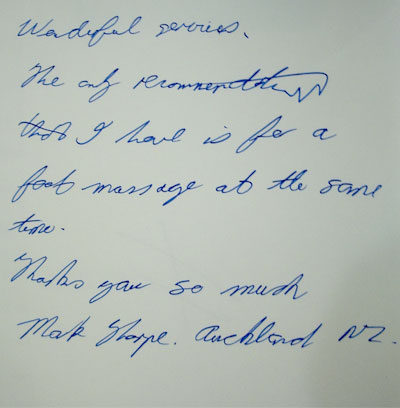 Wonderful services.
The only recommendation
that I have is for a
foot massage at the same
time.
Thanks you so much
Mark Thorpe. Auckland NZ.